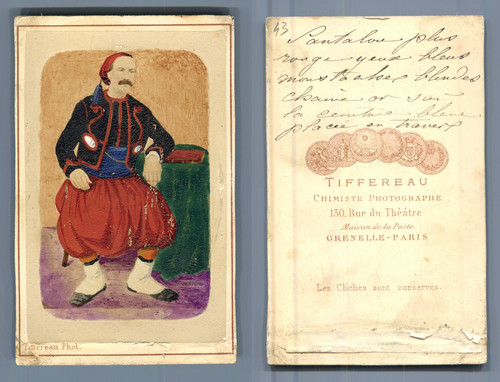 Tiffereau Phot.
43
Pantalon plus
rouge yeux bleus
moustaches blondes
chaine or sur
la ceinture bleue
placée en travers
TIFFEREAU
CHIMISTE PHOTOGRAPHE
130, Rue du Théâtre
Maison de la Poste
GRENELLE-PARIS
Les Clichés sont conservés.